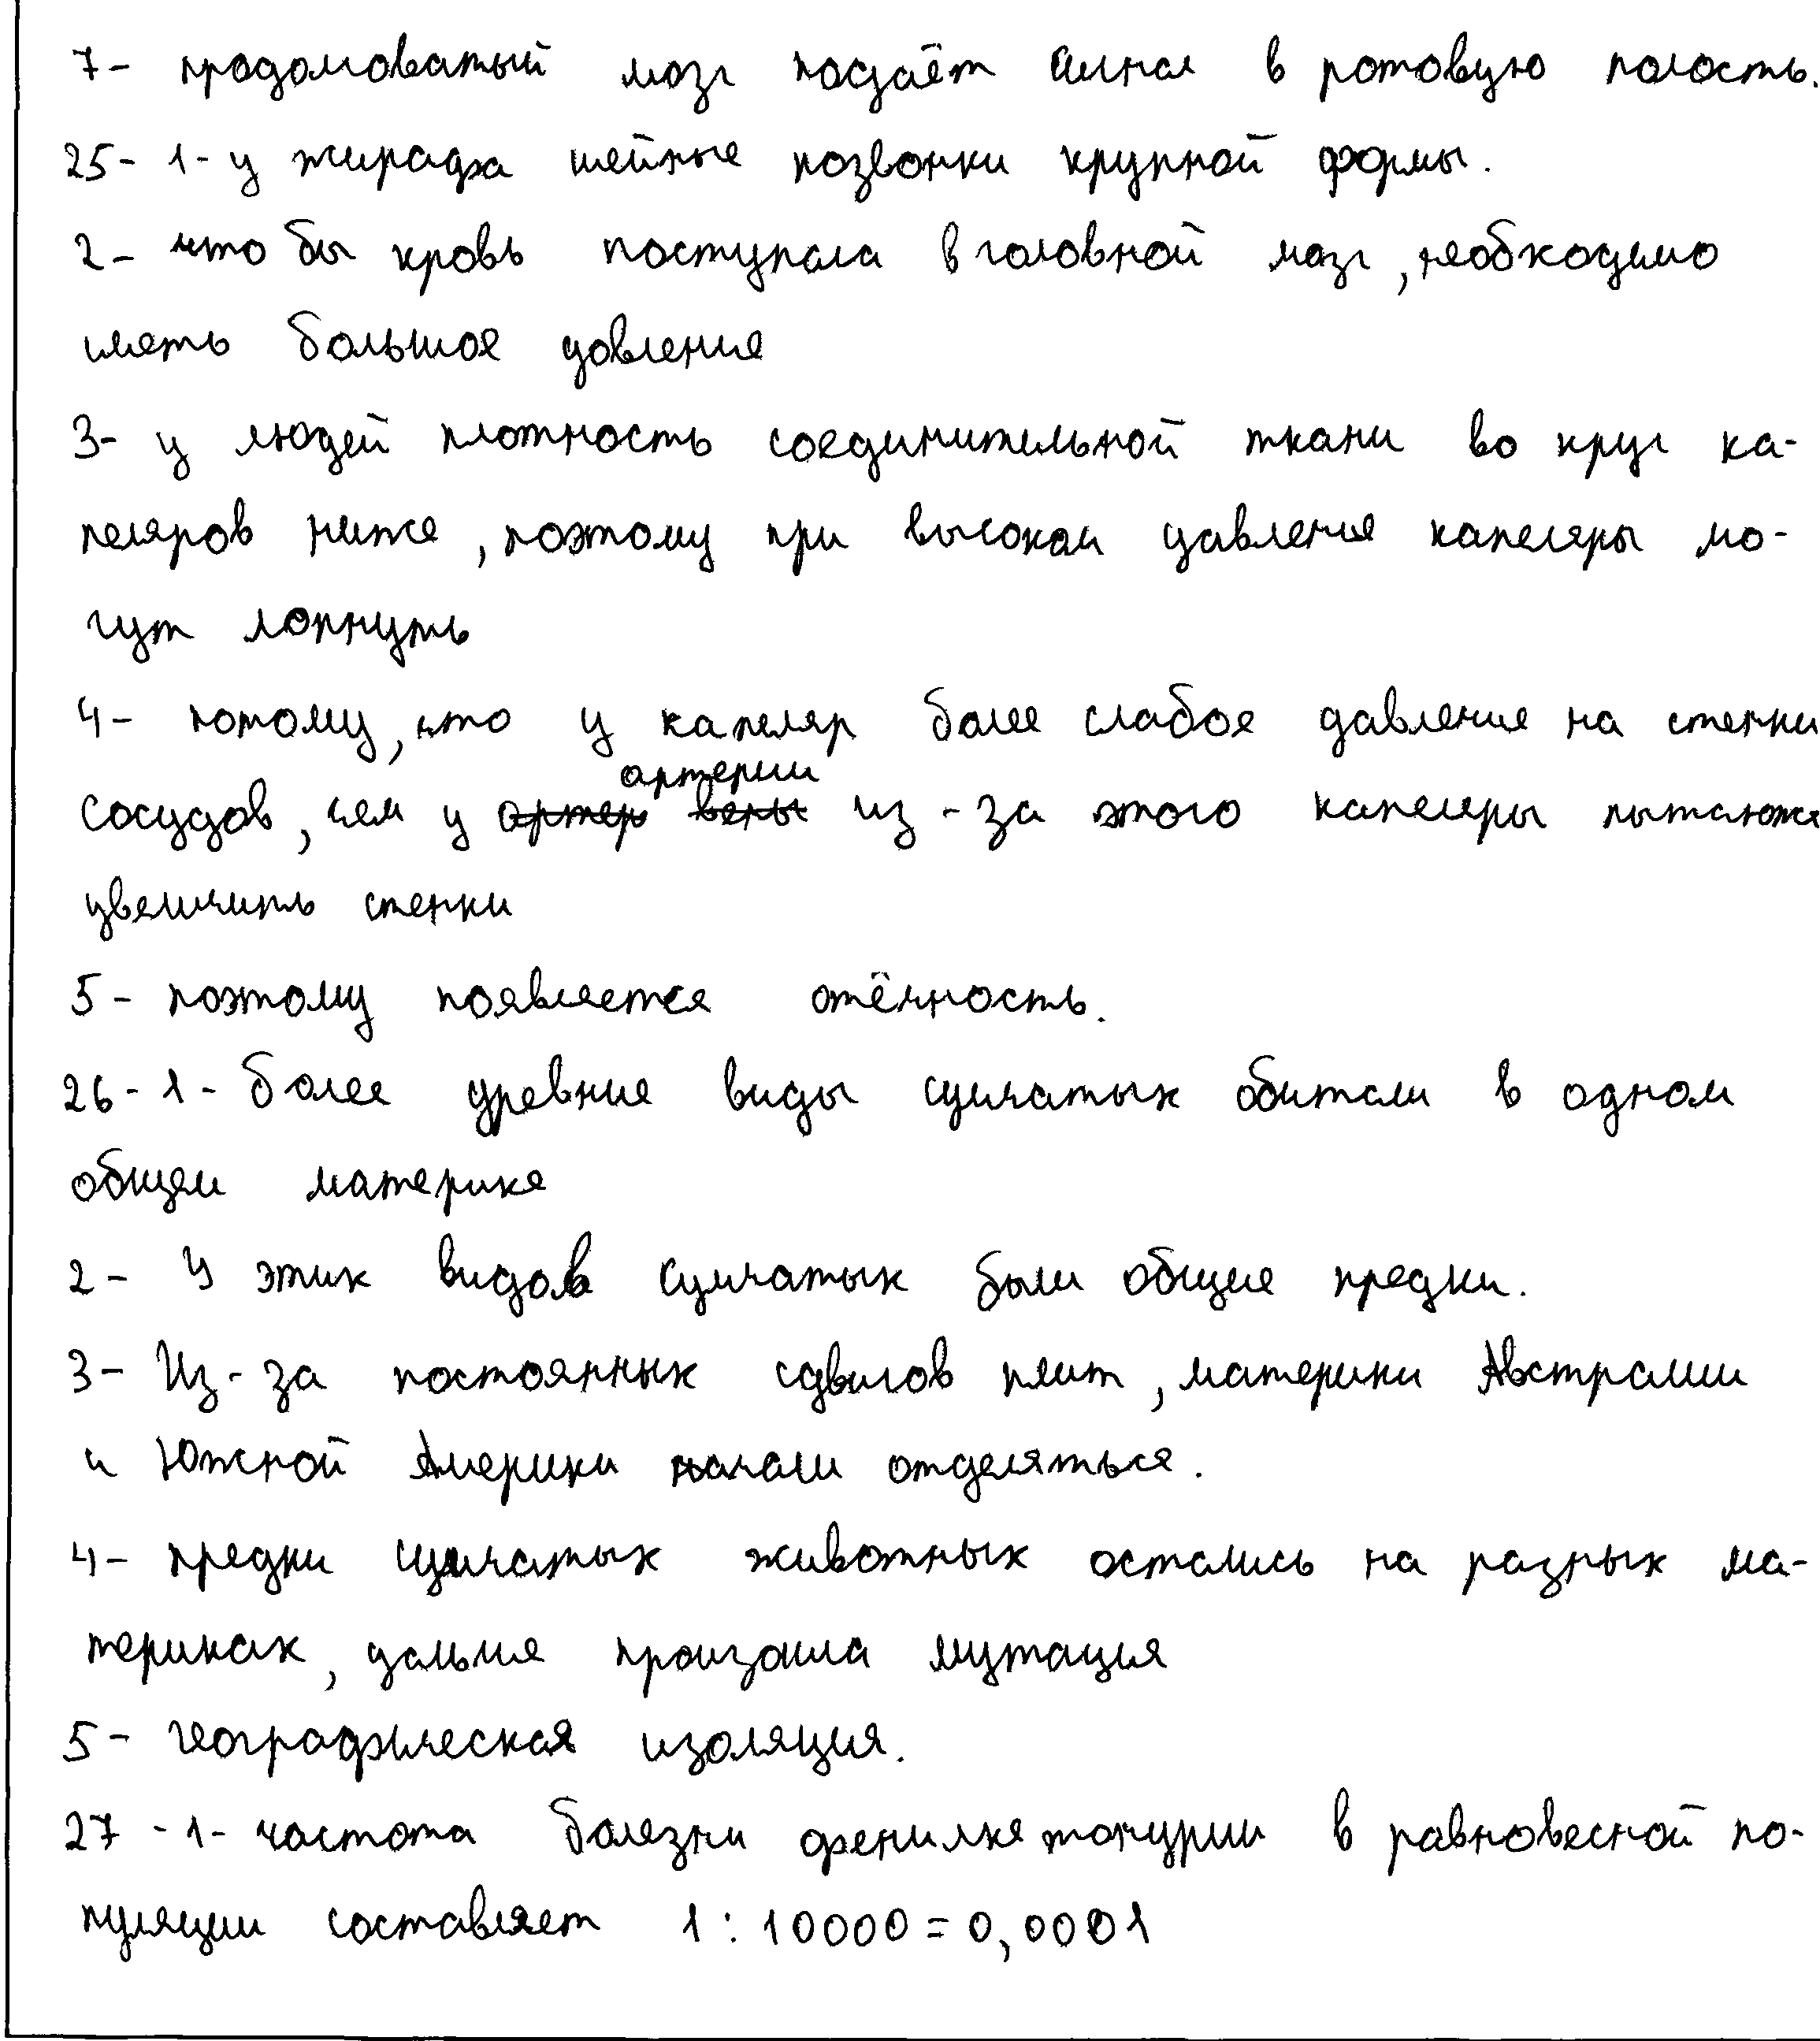 7- продолговатый мозг подаёт сигнал в ротовую полость.
25- 1- у жирафа шейные позвонки крупной формы.
2- что бы кровь поступала в головной мозг, необходимо
иметь большое довление
3- у людей плотность соединительной ткани во круг ка-
пеляров ниже, поэтому при высоком давления капеляры мо-
гут лопнуть
4- потому, что у капеляр более слабое давление на стенки
сосудов, чем у артерии из-за этого капеляры пытаются
увеличить стенки
5- поэтому появляется отёчность.
26- 1- более древние виды сумчатых обитали в одном
общем материке
2- У этих видов сумчатых были общие предки.
3- Из-за постоянных сдвигов плит, материки Австралии
и Южной Америки начали отделяться.
4- предки сумчатых животных остались на разных ма-
териках, дальше произошла мутация
5- географическая изоляция.
27 - 1- частота болезни фенилкетонурии в равновесной по-
пуляции составляет 1 : 10000 = 0,0001